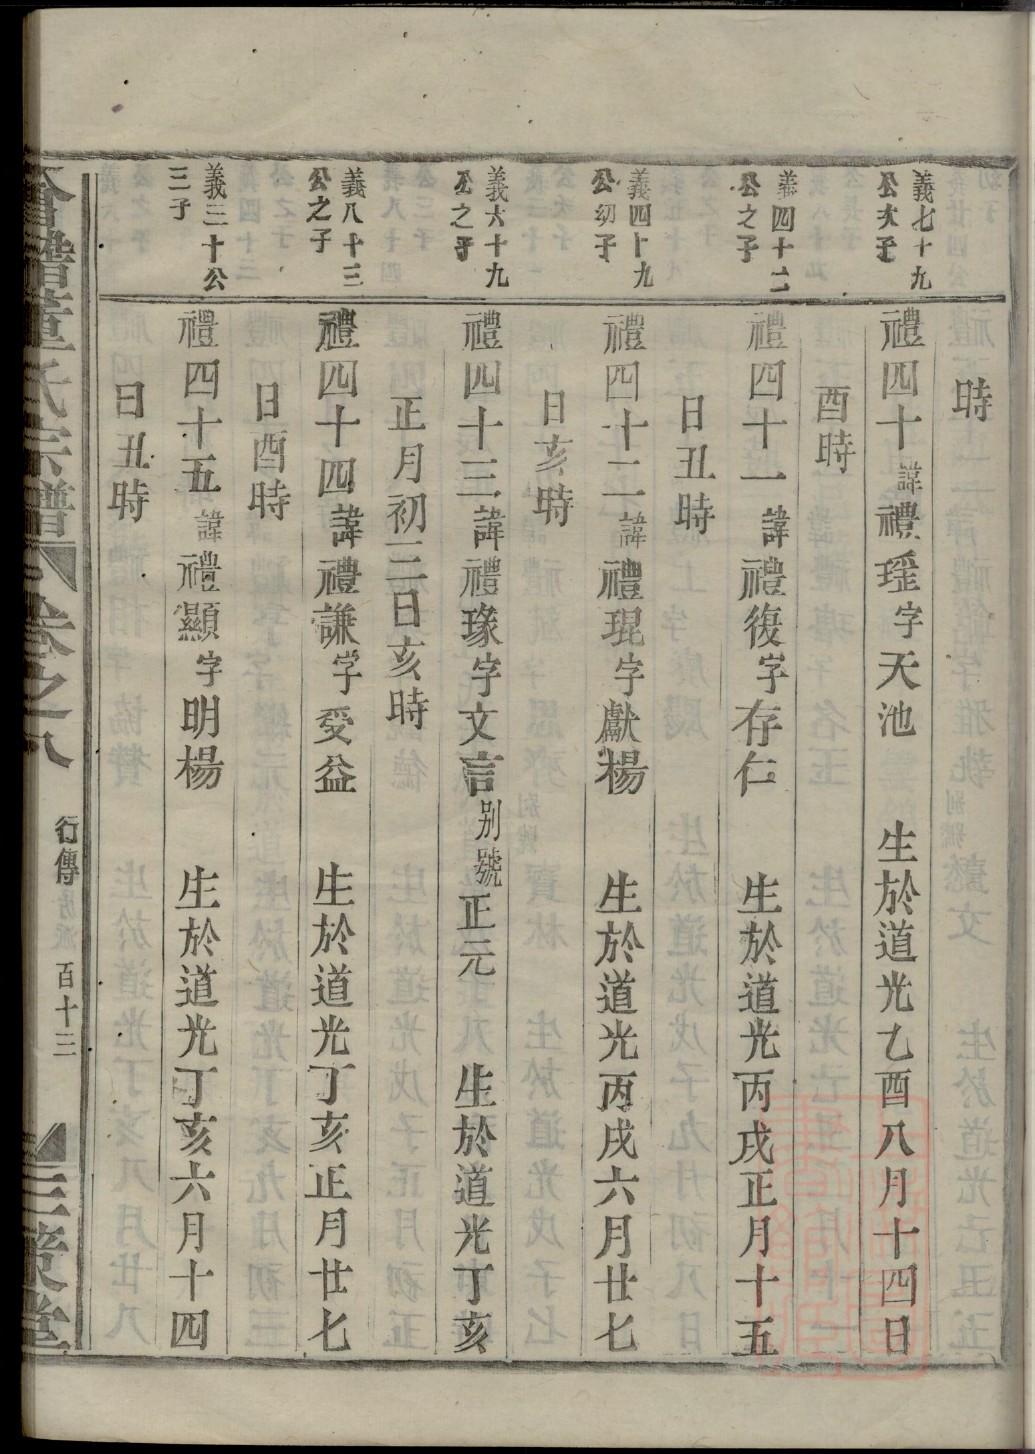 時
義七十九
公次子
禮四十諱禮瑶字天池 生於道光乙酉八月十四日
酉時
義四十二
公之子
禮四十一諱禮復字存仁 生於道光丙戌正月十五
日丑時
義四十九
公幼子
禮四十二諱禮琨字獻楊 生於道光丙戌六月廿七
日亥時
義六十九
公之子
禮四十三諱禮瑑字文言別號正元 生於道光丁亥
正月初二日亥時
義八十三
公之子
禮四十四諱禮謙字受益 生於道光丁亥正月廿七
日酉時
義三十公
三子
禮四十五諱禮顯字明楊 生於道光丁亥六月十四
日丑時
董氏宗譜 卷之八 行傳 百十三 三策堂